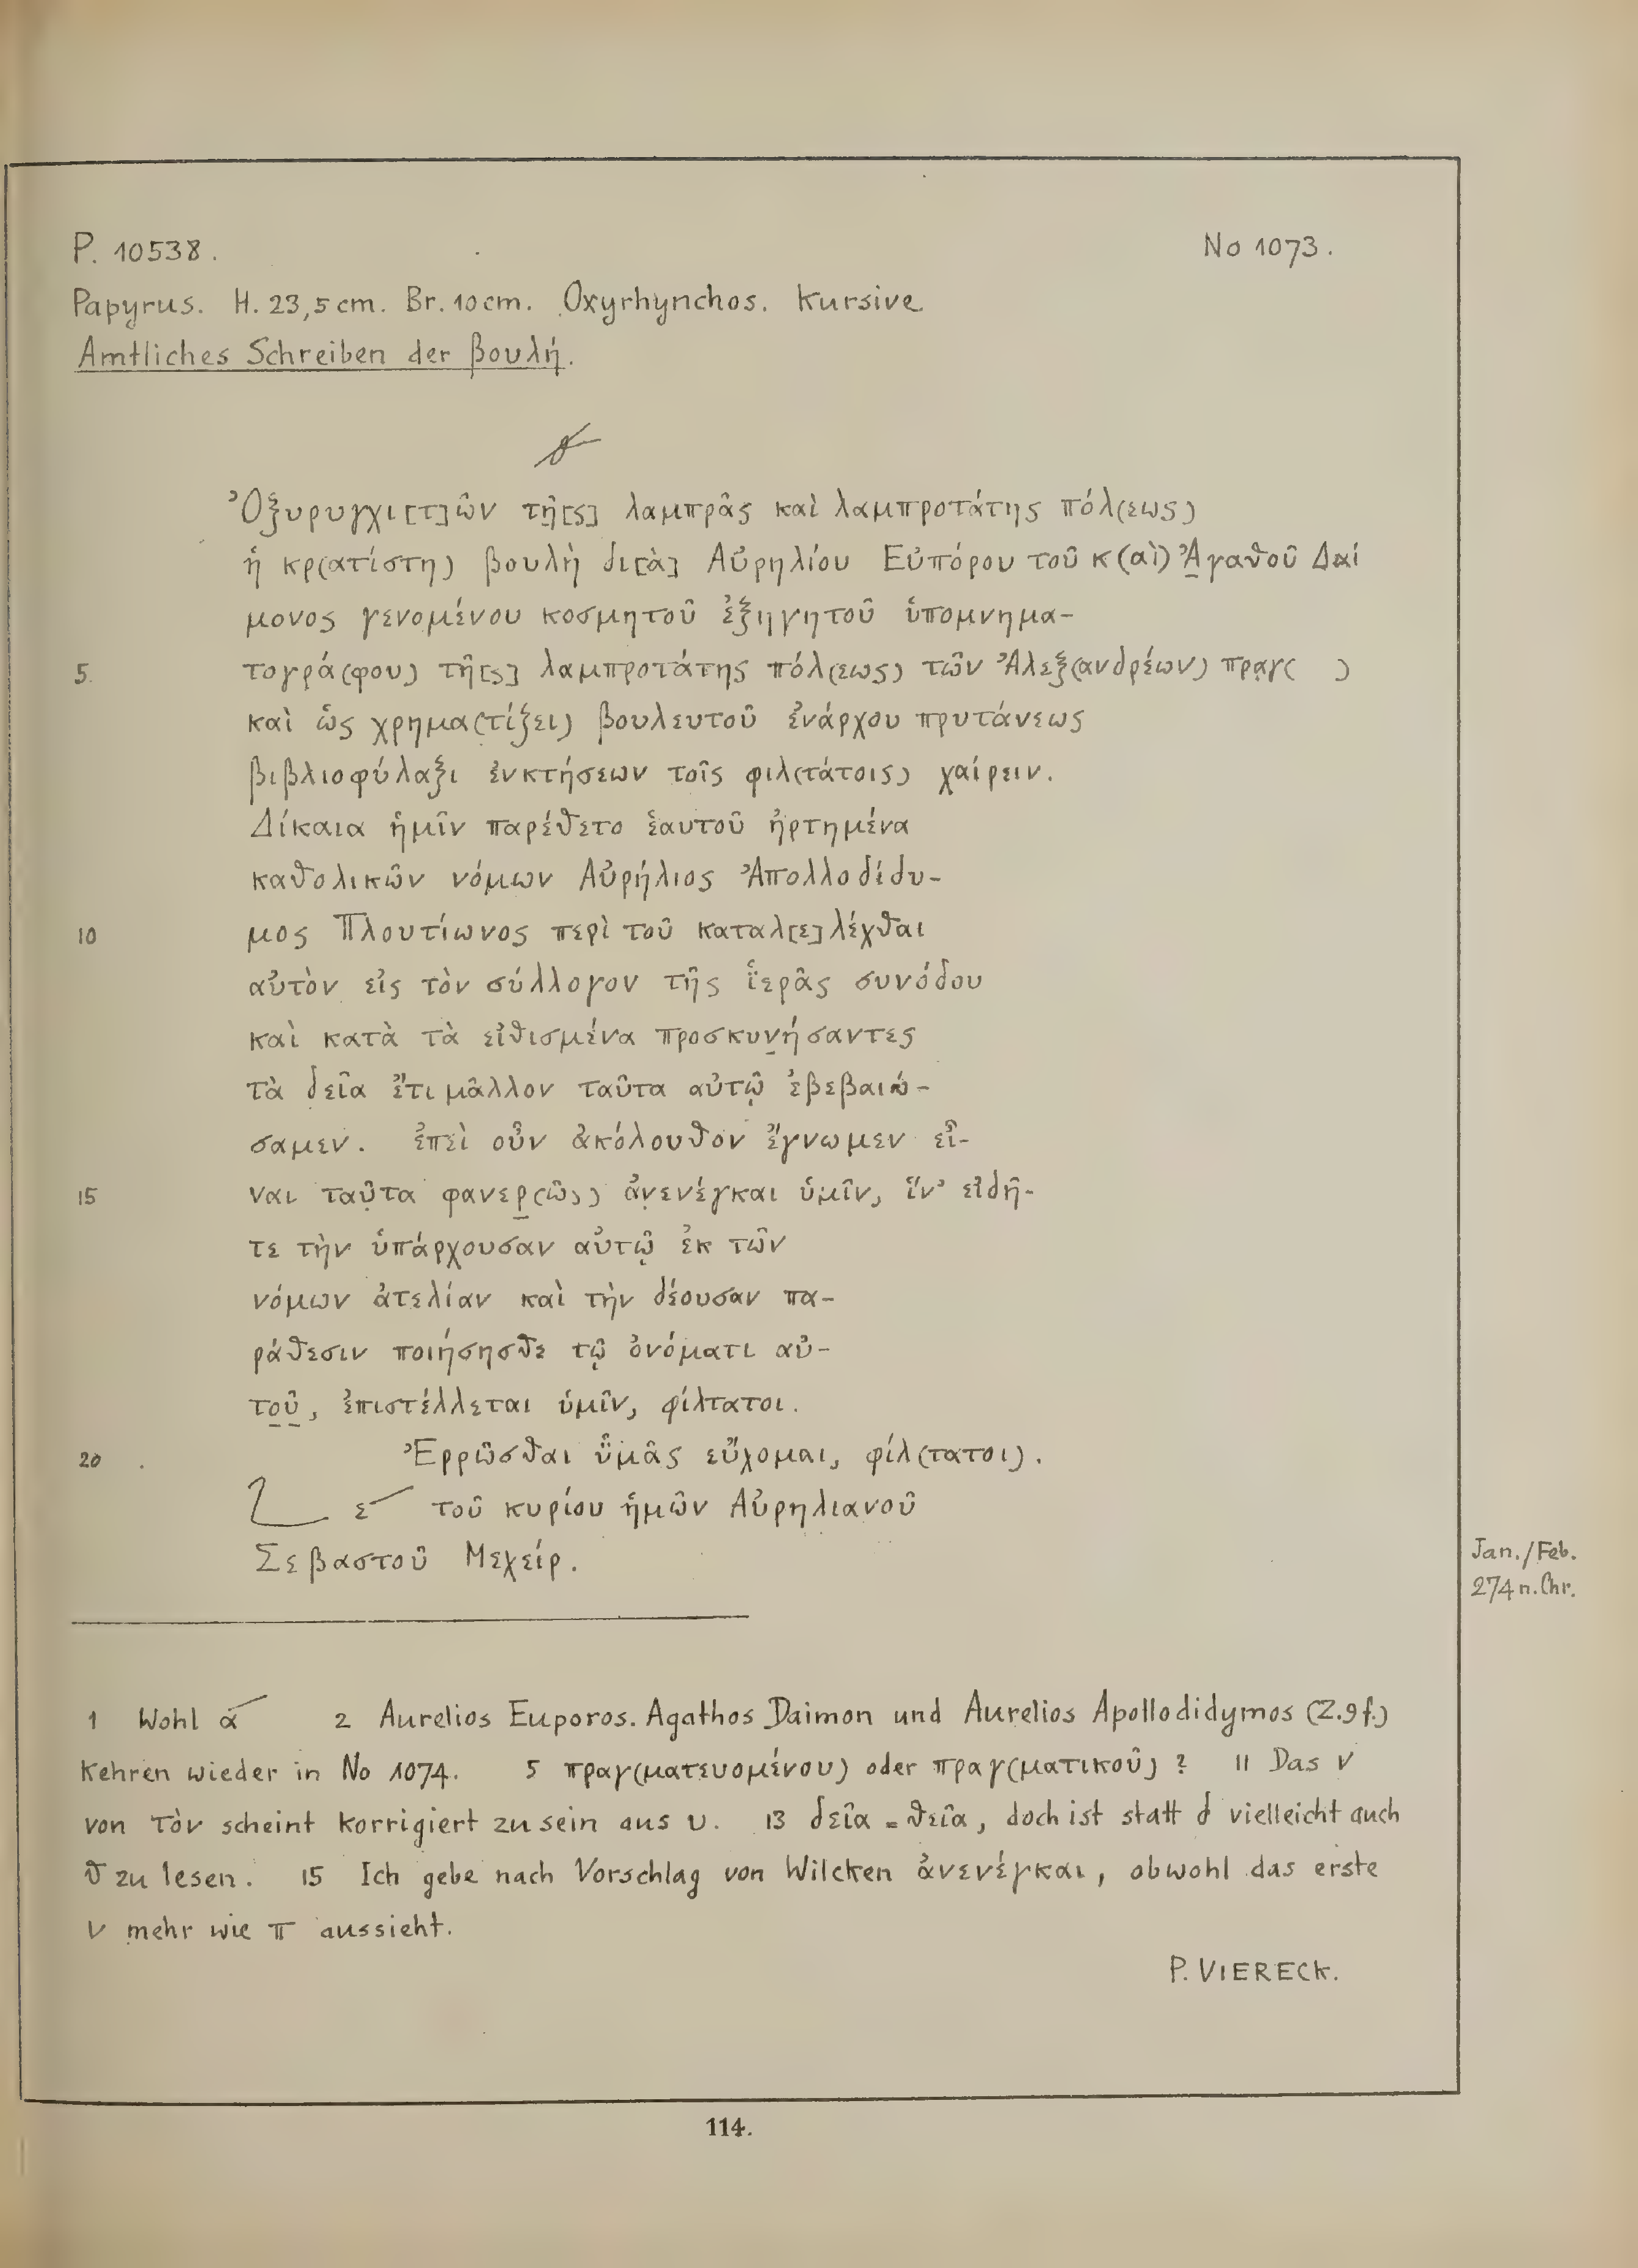 P. 10538. No 1073.
Papyrus. H. 23,5 cm. Br. 10 cm. Oxyrhynchos. Kursive
Amtliches Schreiben der βουλή.
Ὀξυρυγχι[τ]ῶν τῆ[ς] λαμπρᾶς καὶ λαμπροτάτης πόλ(εως)
ἡ κρ(ατίστη) βουλὴ δι[ὰ] Αὐρηλίου Εὐπόρου τοῦ κ(αὶ) Ἀ̣γαθοῦ Δαί
μονος γενομένου κοσμητοῦ ἐξηγητοῦ ὑπομνημα-
5. τογρά(φου) τῆ[ς] λαμπροτάτης πόλ(εως) τῶν Ἀλεξ(ανδρέων) πρα̣γ( )
καὶ ὡς χρημα(τίζει) βουλευτοῦ ἐνάρχου πρυτάνεως
βιβλιοφύλαξι ἐνκτήσεων τοῖς φιλ(τάτοις) χαίρειν.
Δίκαια ἡμῖν παρέθετο ἑαυτοῦ ἠρτημένα
καθολικῶν νόμων Αὐρήλιος Ἀπολλοδίδυ-
10 μος Πλουτίωνος περὶ τοῦ καταλ[ε]λέχθαι
αὐτὸν εἰς τὸν σύλλογον τῆς ἱ̈ερᾶς συνόδου
καὶ κατὰ τὰ εἰθισμένα προσκυν̣ήσαντες
τὰ δεῖα ἔτι μᾶλλον ταῦτα αὐτῷ ἐβεβαιώ-
σαμεν. ἐπεὶ οὖν ἀκόλουθον ἔγνωμεν εἶ-
15 ναι ταῦ̣τα φανερ̣(ῶς) ἀν̣ενέγκαι ὑμῖν, ἵν' εἰδῆ-
τε τὴν ὑπάρχουσαν αὐτῷ ἐκ τῶν
νόμων ἀτελίαν καὶ τὴν δέουσαν πα-
ράθεσιν ποιήσησθε τῷ ὀνόματι αὐ-
το̣ῦ̣, ἐπιστέλλεται ὑμῖν, φίλτατοι.
20 Ἐρρῶσθαι ὑ̈μᾶς εὔχομαι, φίλ(τατοι).
ε τοῦ κυρίου ἡμῶν Αὐρηλιανοῦ
Σεβαστοῦ Μεχείρ.
Jan./Feb.
274 n. Chr.
1 Wohl α 2 Aurelios Euporos. Agathos Daimon und Aurelios Apollodidymos (Z. 9 f.)
kehren wieder in No 1074. 5 πραγ(ματευομένου) oder πραγ(ματικοῦ) ? 11 Das ν
von τὸν scheint korrigiert zu sein aus υ. 13 δεῖα = θεῖα, doch ist statt δ vielleicht auch
θ zu lesen. 15 Ich gebe nach Vorschlag von Wilcken ἀνενέγκαι, obwohl das erste
ν mehr wie π aussieht.
P. VIERECK.
114.